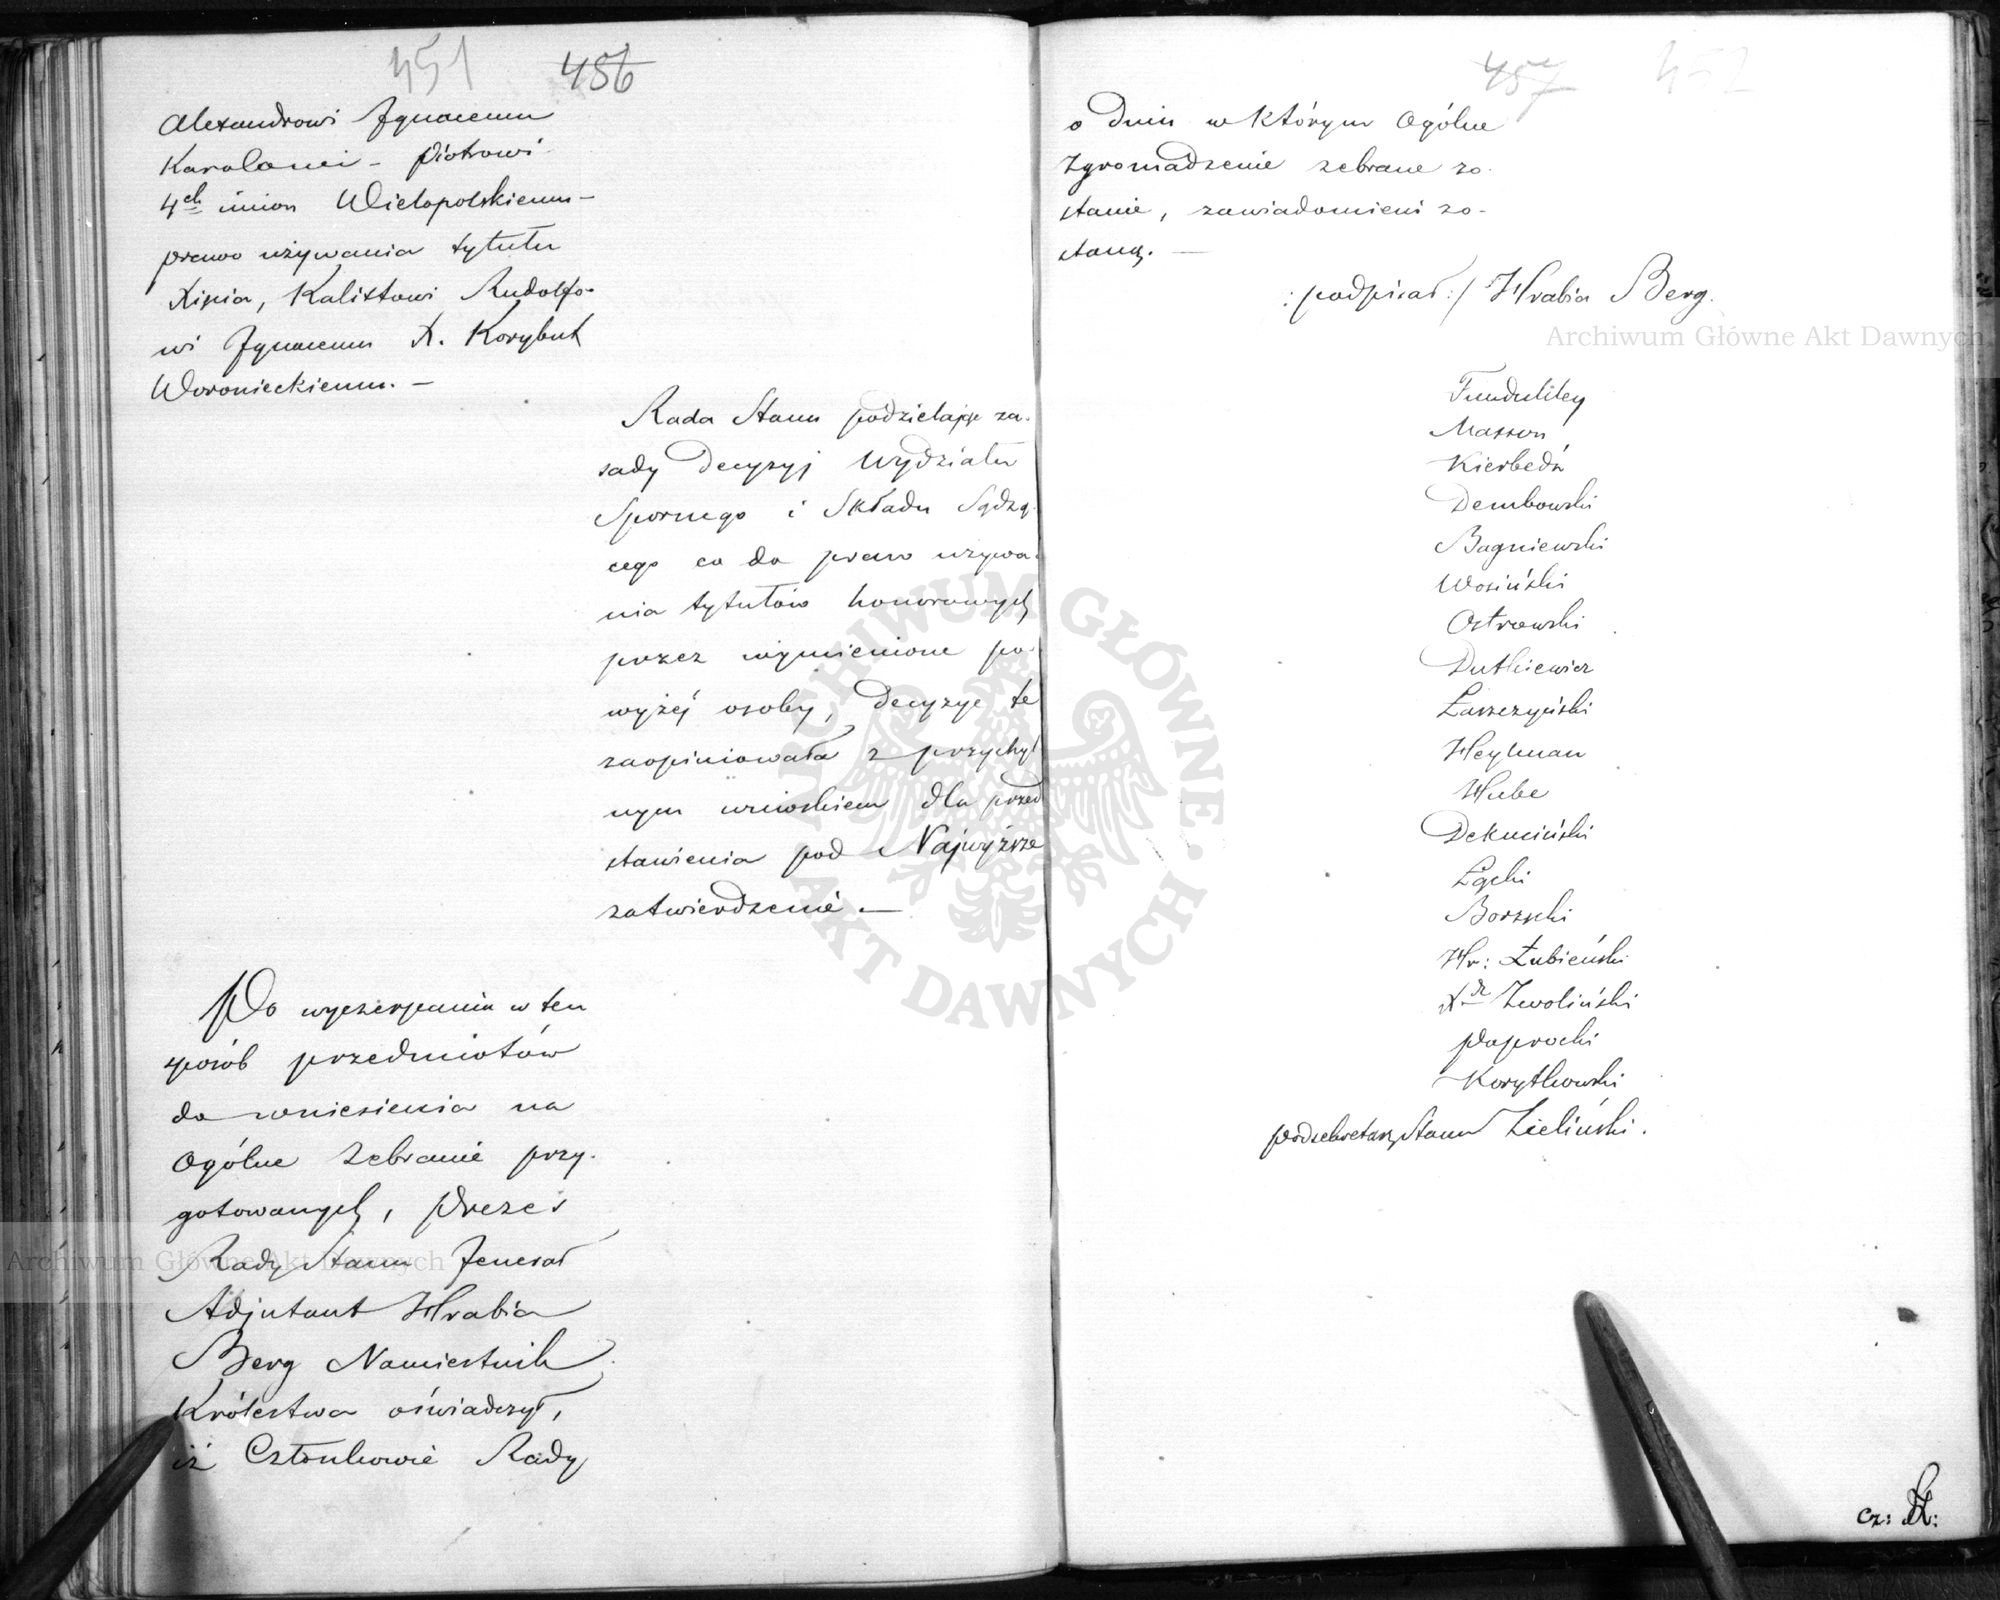 451 456
Alexandrowi Ignacemu
Karolowi - Piotrowi
4ch imion Wielopolskiemu -
prawo używania tytułu
Xięcia, Kalixtowi Rudolfo-
wi Ignacemu X. Korybut
Woronieckiemu. -
Rada Stanu podzielając za-
sady decyzyj Wydziału
Spornego i Składu Sądzą-
cego co do praw używa-
nia tytułów honorowych
przez wymienione po-
wyżéj osoby, decyzye te
zaopiniowała z przychyl
nym wnioskiem dla przed
stawienia pod Najwyższe
zatwierdzenie. -
Po wyczerpaniu w ten
sposób przedmiotów
do wniesienia na
Ogólne Zebranie przy-
gotowanych, Prezes
Rady Stanu Jenerał
Adjutant Hrabia
Berg Namiestnik
Królestwa oświadczył,
iż Członkowie Rady
457 452
o dniu w którym Ogólne
Zgromadzenie zebrane zo-
stanie, zawiadomieni zo-
staną. -
: podpisał :/ Hrabia Berg.
Fundukley
Masson
Kierbedź
Dembowski
Bagniewski
Wosiński
Ostrowski
Dutkiewicz
Łaszczyński
Heylman
Hube
Dekuciński
Łącki
Borzęcki
Hr: Łubieński
Xdz Zwoliński
Paprocki
Korytkowski
Podsekretarz Stanu Zieliński.
cz:
Archiwum Główne Akt Dawnych
Archiwum Główne Akt Dawnych
ARCHIWUM GŁÓWNE · AKT DAWNYCH ·